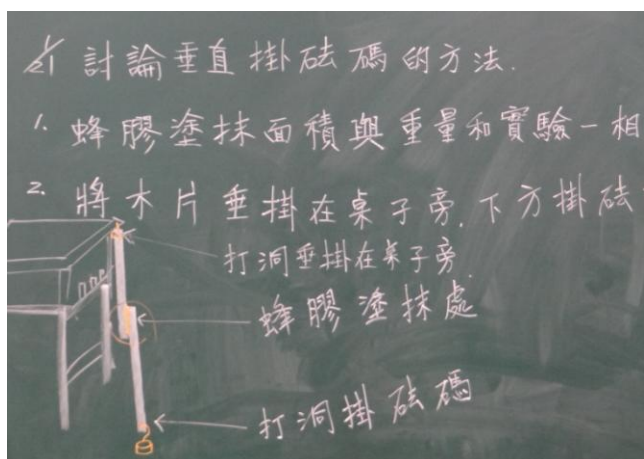 討論垂直掛砝碼的方法.
1. 蜂膠塗抹面積與重量和實驗一相
2. 將木片垂掛在桌子旁,下方掛砝
打洞垂掛在桌子旁.
蜂膠塗抹處
打洞掛砝碼